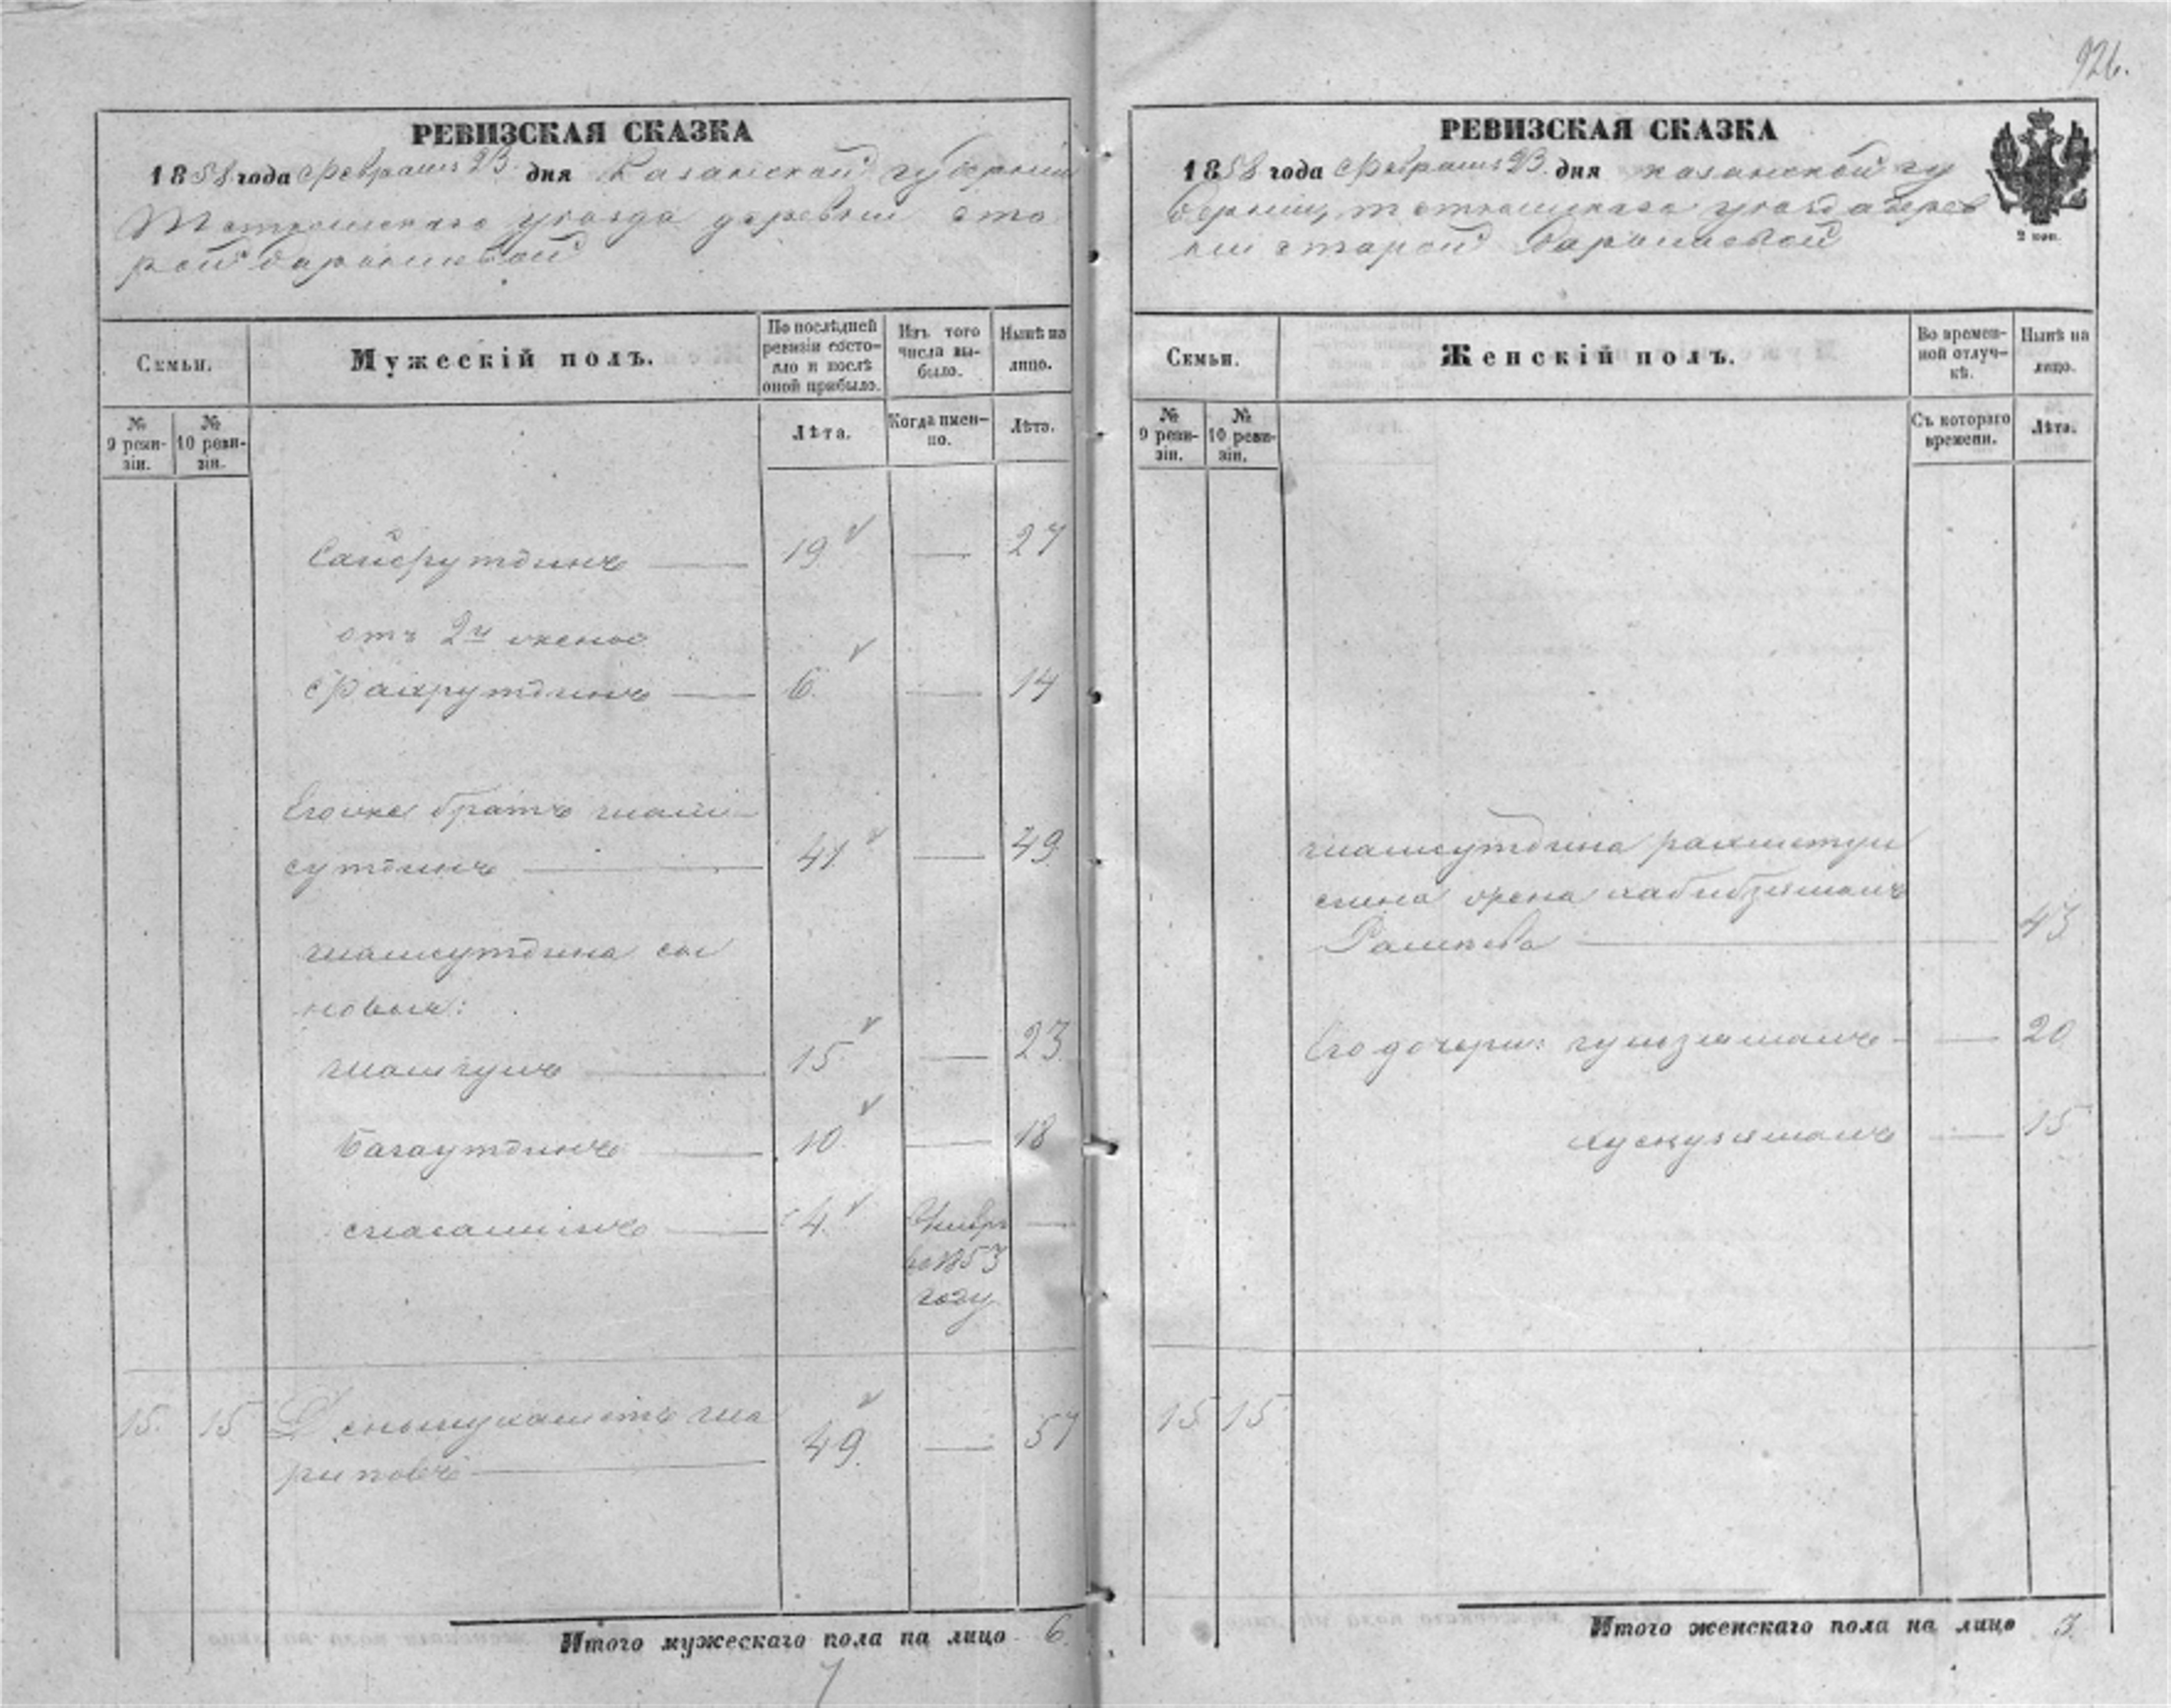 926.
РЕВИЗСКАЯ СКАЗКА
1858 года Февраля 23 дня Казанской губернии
Тетюшскаго уезда деревни Ста
рой Барышевой
Семьи.
Мужескій полъ.
По послѣдней ревизіи состояло и послѣ оной прибыло.
Изъ того числа выбыло.
Нынѣ на лицо.
№ 9 ревизіи.
№ 10 ревизіи.
Лѣта.
Когда именно.
Лѣта.
Сайфутдинъ 19 — 27
отъ 2й жены
Фахрутдинъ 6. — 14
Егоже братъ шам
сутдинъ 41 — 49.
шамсутдина сы
новья:
15 — 23.
Багаутдинъ 10. — 18
4. —
во 1853
году
15. 15
49. — 57
риповъ
Итого мужескаго пола на лицо 6.
7
РЕВИЗСКАЯ СКАЗКА
1858 года Февраля 23. дня казанской гу
бернии, тетюшскаго уезда дерев
ни старой барышевой
2 коп.
Семьи.
Женскій полъ.
Во временной отлучкѣ.
Нынѣ на лицо.
№ 9 ревизіи.
№ 10 ревизіи.
Съ котораго времени.
Лѣта.
шамсутдина
жена
43.
Его дочери: — 20
— 15
15 15
Итого женскаго пола на лицо 3.